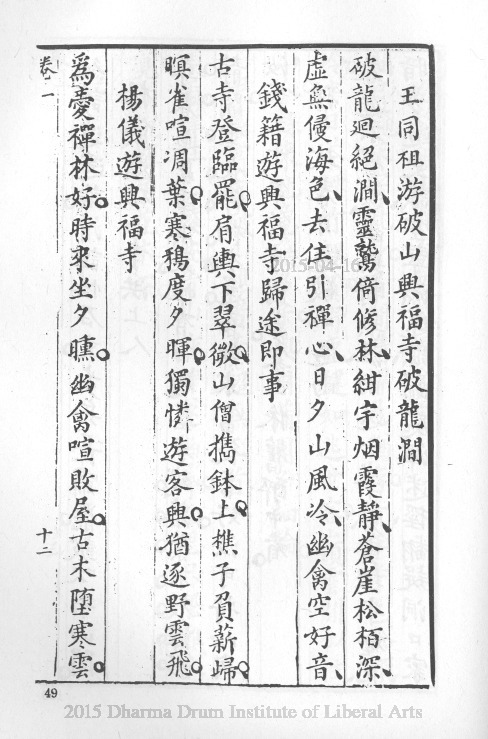 王同祖游破山興福寺破龍澗
破龍迴絕澗靈鷲倚修林紺宇烟霞靜蒼崖松栢深
虛無侵海色去住引禪心日夕山風冷幽禽空好音
錢籍遊興福寺歸途即事
古寺登臨罷肩輿下翠微山僧擕鉢上樵子負薪歸
暝雀喧凋葉寒鴉度夕暉獨憐遊客興猶逐野雲飛
楊儀遊興福寺
爲憂禪林好時來坐夕曛幽禽喧敗屋古木墮寒雲
卷一
十二
49
2015-04-16
2015 Dharma Drum Institute of Liberal Arts